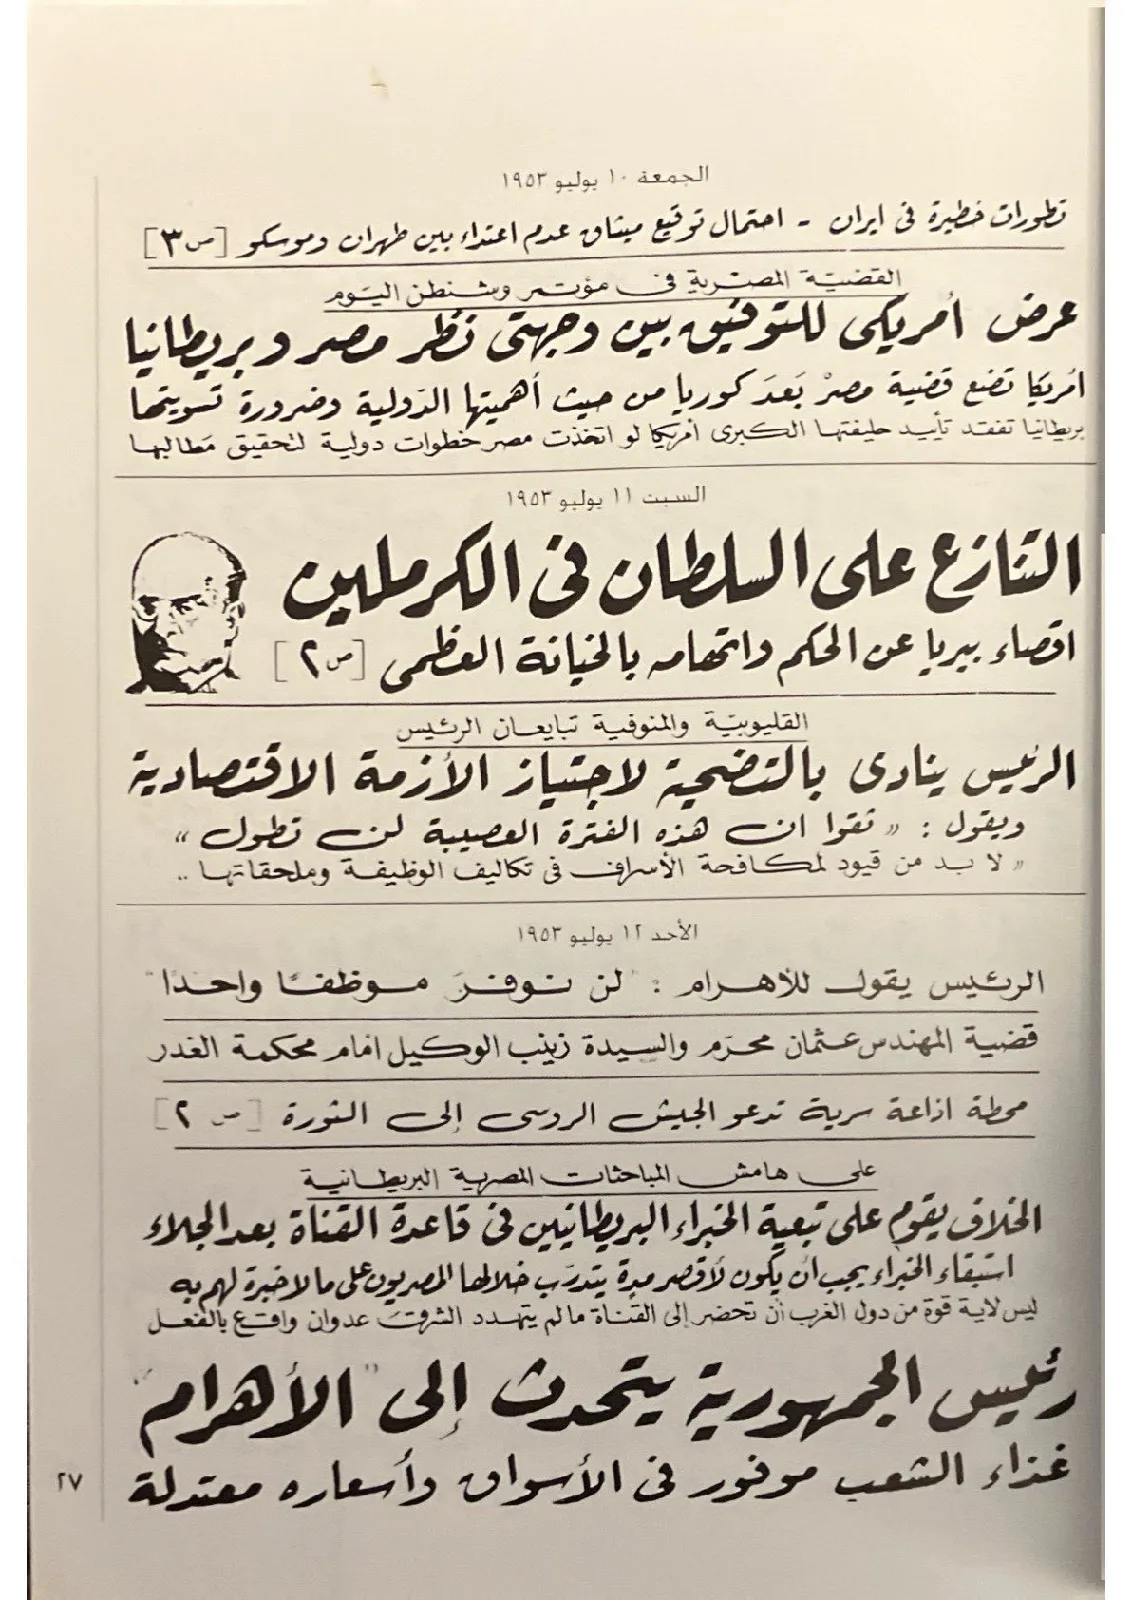 الجمعة ١٠ يوليو ١٩٥٣
تطورات خطيرة فى ايران - احتمال توقيع ميثاق عدم اعتداء بين طهران وموسكو [ص ٣]
القضية المصرية فى مؤتمر وشنطن اليوم
عرض أمريكى للتوفيق بين وجهتى نظر مصر وبريطانيا
امريكا تضع قضية مصر بعد كوريا من حيث أهميتها الدولية وضرورة تسويتها
بريطانيا تفقد تأييد حليفتها الكبرى أمريكا لو اتخذت مصر خطوات دولية لتحقيق مطالبها
السبت ١١ يوليو ١٩٥٣
التنازع على السلطان فى الكرملين
اقصاء بيريا عن الحكم واتهامه بالخيانة العظمى [ص ٢]
القليوبية والمنوفية تبايعان الرئيس
الرئيس ينادى بالتضحية لاجتياز الأزمة الاقتصادية
ويقول : « ثقوا ان هذه الفترة العصيبة لن تطول »
« لا بد من قيود لمكافحة الأسراف فى تكاليف الوظيفة وملحقاتها ..
الأحد ١٢ يوليو ١٩٥٣
الرئيس يقول للأهرام : "لن نوفر موظفا واحدا"
قضية المهندس عثمان محرم والسيدة زينب الوكيل امام محكمة الغدر
محطة اذاعة سرية تدعو الجيش الروسى إلى الثورة [ص ٢]
على هامش المباحثات المصرية البريطانية
الخلاف يقوم على تبعية الخبراء البريطانيين فى قاعدة القناة بعد الجلاء
استبقاء الخبراء يجب أن يكون لأقصر مدة يتدرب خلالها المصريون على ما لا خبرة لهم به
ليس لاية قوة من دول الغرب أن تحضر إلى القناة ما لم يتهدد الشرق عدوان واقع بالفعل
رئيس الجمهورية يتحدث إلى "الأهرام"
غذاء الشعب موفور فى الأسواق وأسعاره معتدلة
٢٧